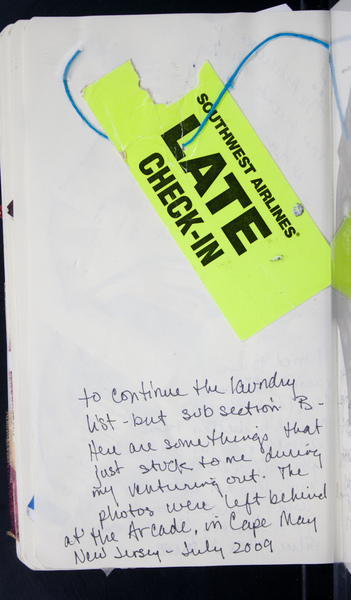 SOUTHWEST AIRLINES®
LATE
CHECK-IN
to continue the laundry
list - but subsection B -
Here are somethings that
just stuck to me during
my venturing out. The
photos were left behind
at the Arcade, in Cape May
New Jersey - July 2009